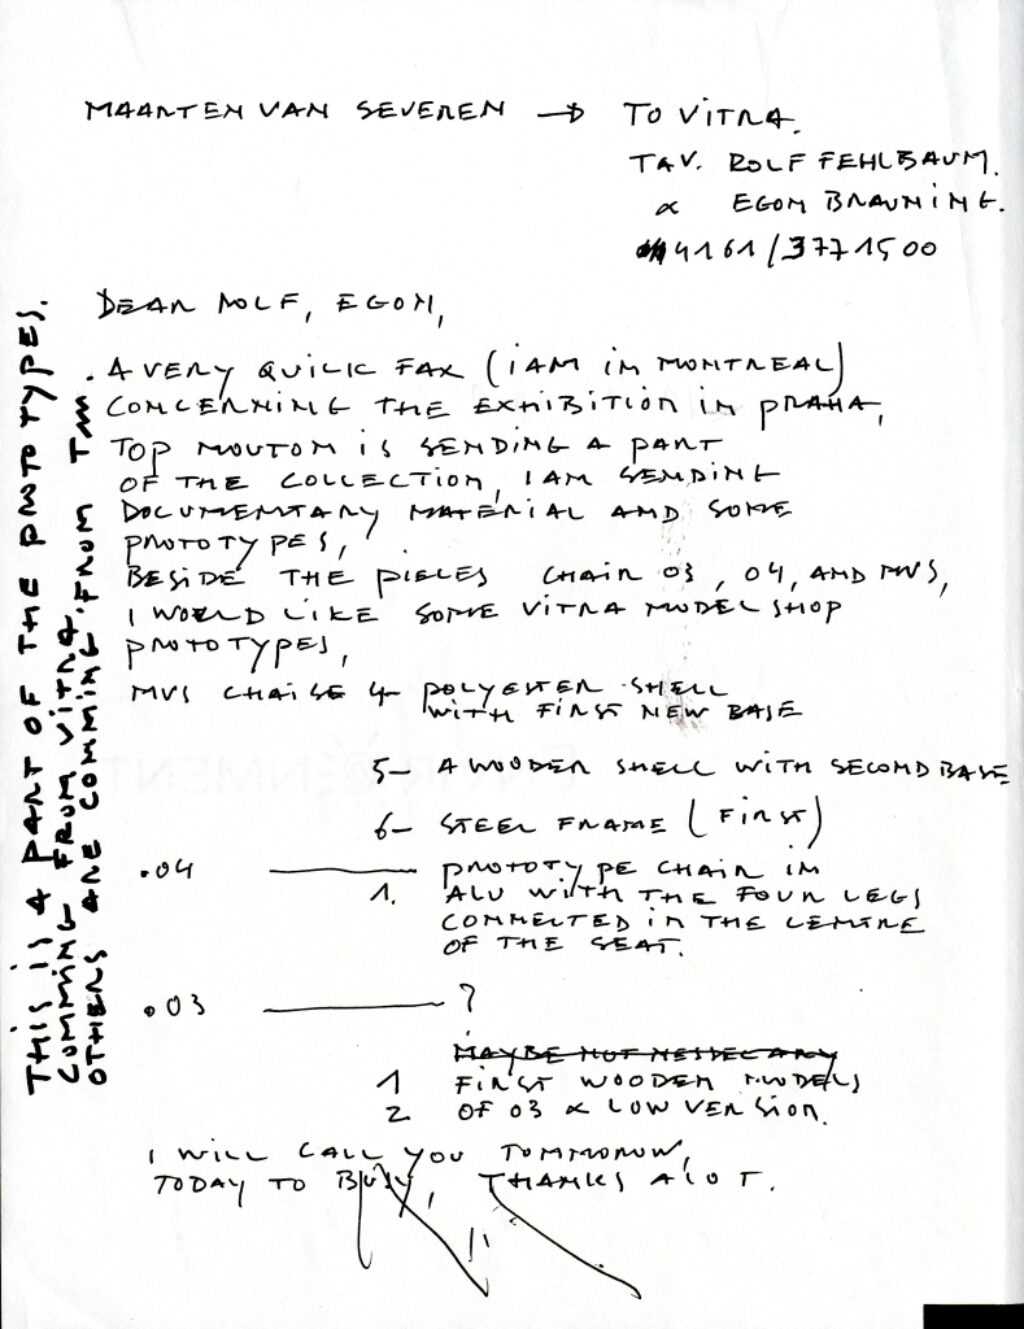 MAARTEN VAN SEVEREN → TO VITRA.
TAV. ROLF FEHLBAUM.
& EGON BRAUNING.
4161/3771500
DEAR ROLF, EGON,
A VERY QUICK FAX (I AM IN MONTREAL)
CONCERNING THE EXHIBITION IN PRAHA,
TOP MOUTON IS SENDING A PART
OF THE COLLECTION, I AM SENDING
DOCUMENTARY MATERIAL AND SOME
PROTOTYPES,
BESIDE THE PIECES CHAIR 03, 04, AND MVS,
I WOULD LIKE SOME VITRA MODEL SHOP
PROTOTYPES,
MVS CHAISE 4- POLYESTER SHELL
WITH FIRST NEW BASE
5- A WOODEN SHELL WITH SECOND BASE
6- STEEL FRAME (FIRST)
.04 PROTOTYPE CHAIR IN
1. ALU WITH THE FOUR LEGS
CONNECTED IN THE CENTRE
OF THE SEAT.
.03 ?
MAYBE NOT NESSECARY
1 FIRST WOODEN MODELS
2 OF 03 & LOW VERSION.
I WILL CALL YOU TOMMOROW,
TODAY TO BUSY, THANKS A LOT.
THIS IS A PART OF THE PROTOTYPES.
COMMING FROM VITRA.
OTHERS ARE COMMING FROM TM.